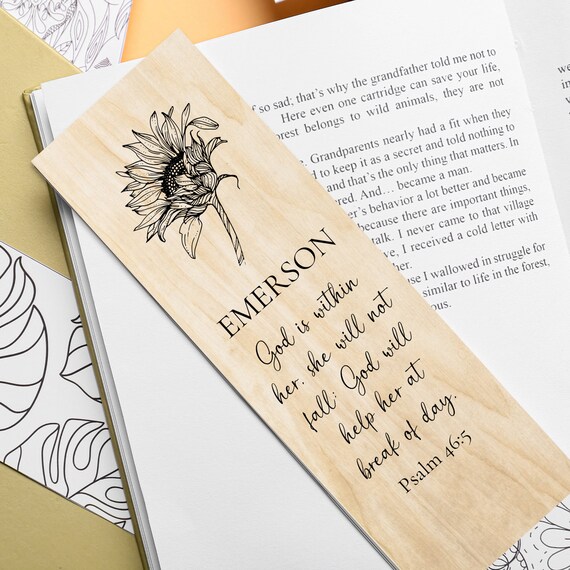 EMERSON
God is within
her, she will not
fall; God will
help her at
break of day.
Psalm 46:5
of so sad; that's why the grandfather told me not to
Here even one cartridge can save your life,
forest belongs to wild animals, they are not
Grandparents nearly had a fit when they
to keep it as a secret and told nothing to
and that's the only thing that matters. In
ered. And... became a man.
er's behavior a lot better and became
because there are important things,
alk. I never came to that village
e, I received a cold letter with
her.
use I wallowed in struggle for
similar to life in the forest,
ous.
we
in